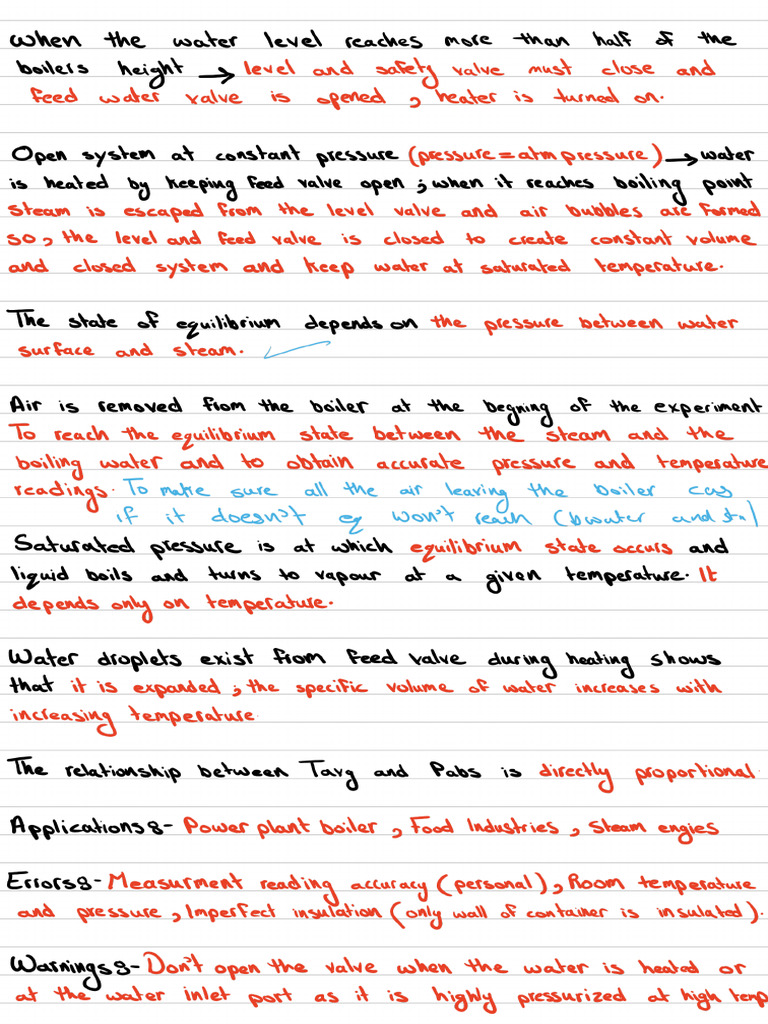 When the water level reaches more than half of the
boilers height → level and safety valve must close and
feed water valve is opened , heater is turned on.
Open system at constant pressure (pressure = atm pressure) → water
is heated by keeping feed valve open ; when it reaches boiling point
steam is escaped from the level valve and air bubbles are formed
so , the level and feed valve is closed to create constant volume
and closed system and keep water at saturated temperature.
The state of equilibrium depends on the pressure between water
surface and steam. ✓
Air is removed from the boiler at the begning of the experiment
To reach the equilibrium state between the steam and the
boiling water and to obtain accurate pressure and temperature
readings. To make sure all the air leaving the boiler cus
if it doesn't eq won't reach (bwater and
Saturated pressure is at which equilibrium state occurs and
liquid boils and turns to vapour at a given temperature. It
depends only on temperature.
Water droplets exist from feed valve during heating shows
that it is expanded ; the specific volume of water increases with
increasing temperature.
The relationship between Tavg and Pabs is directly proportional
Applications :- Power plant boiler , Food Industries , Steam engies
Errors :- Measurment reading accuracy (personal) , Room temperature
and pressure , Imperfect insulation (only wall of container is insulated).
Warnings :- Don't open the valve when the water is heated or
at the water inlet port as it is highly pressurized at high temp